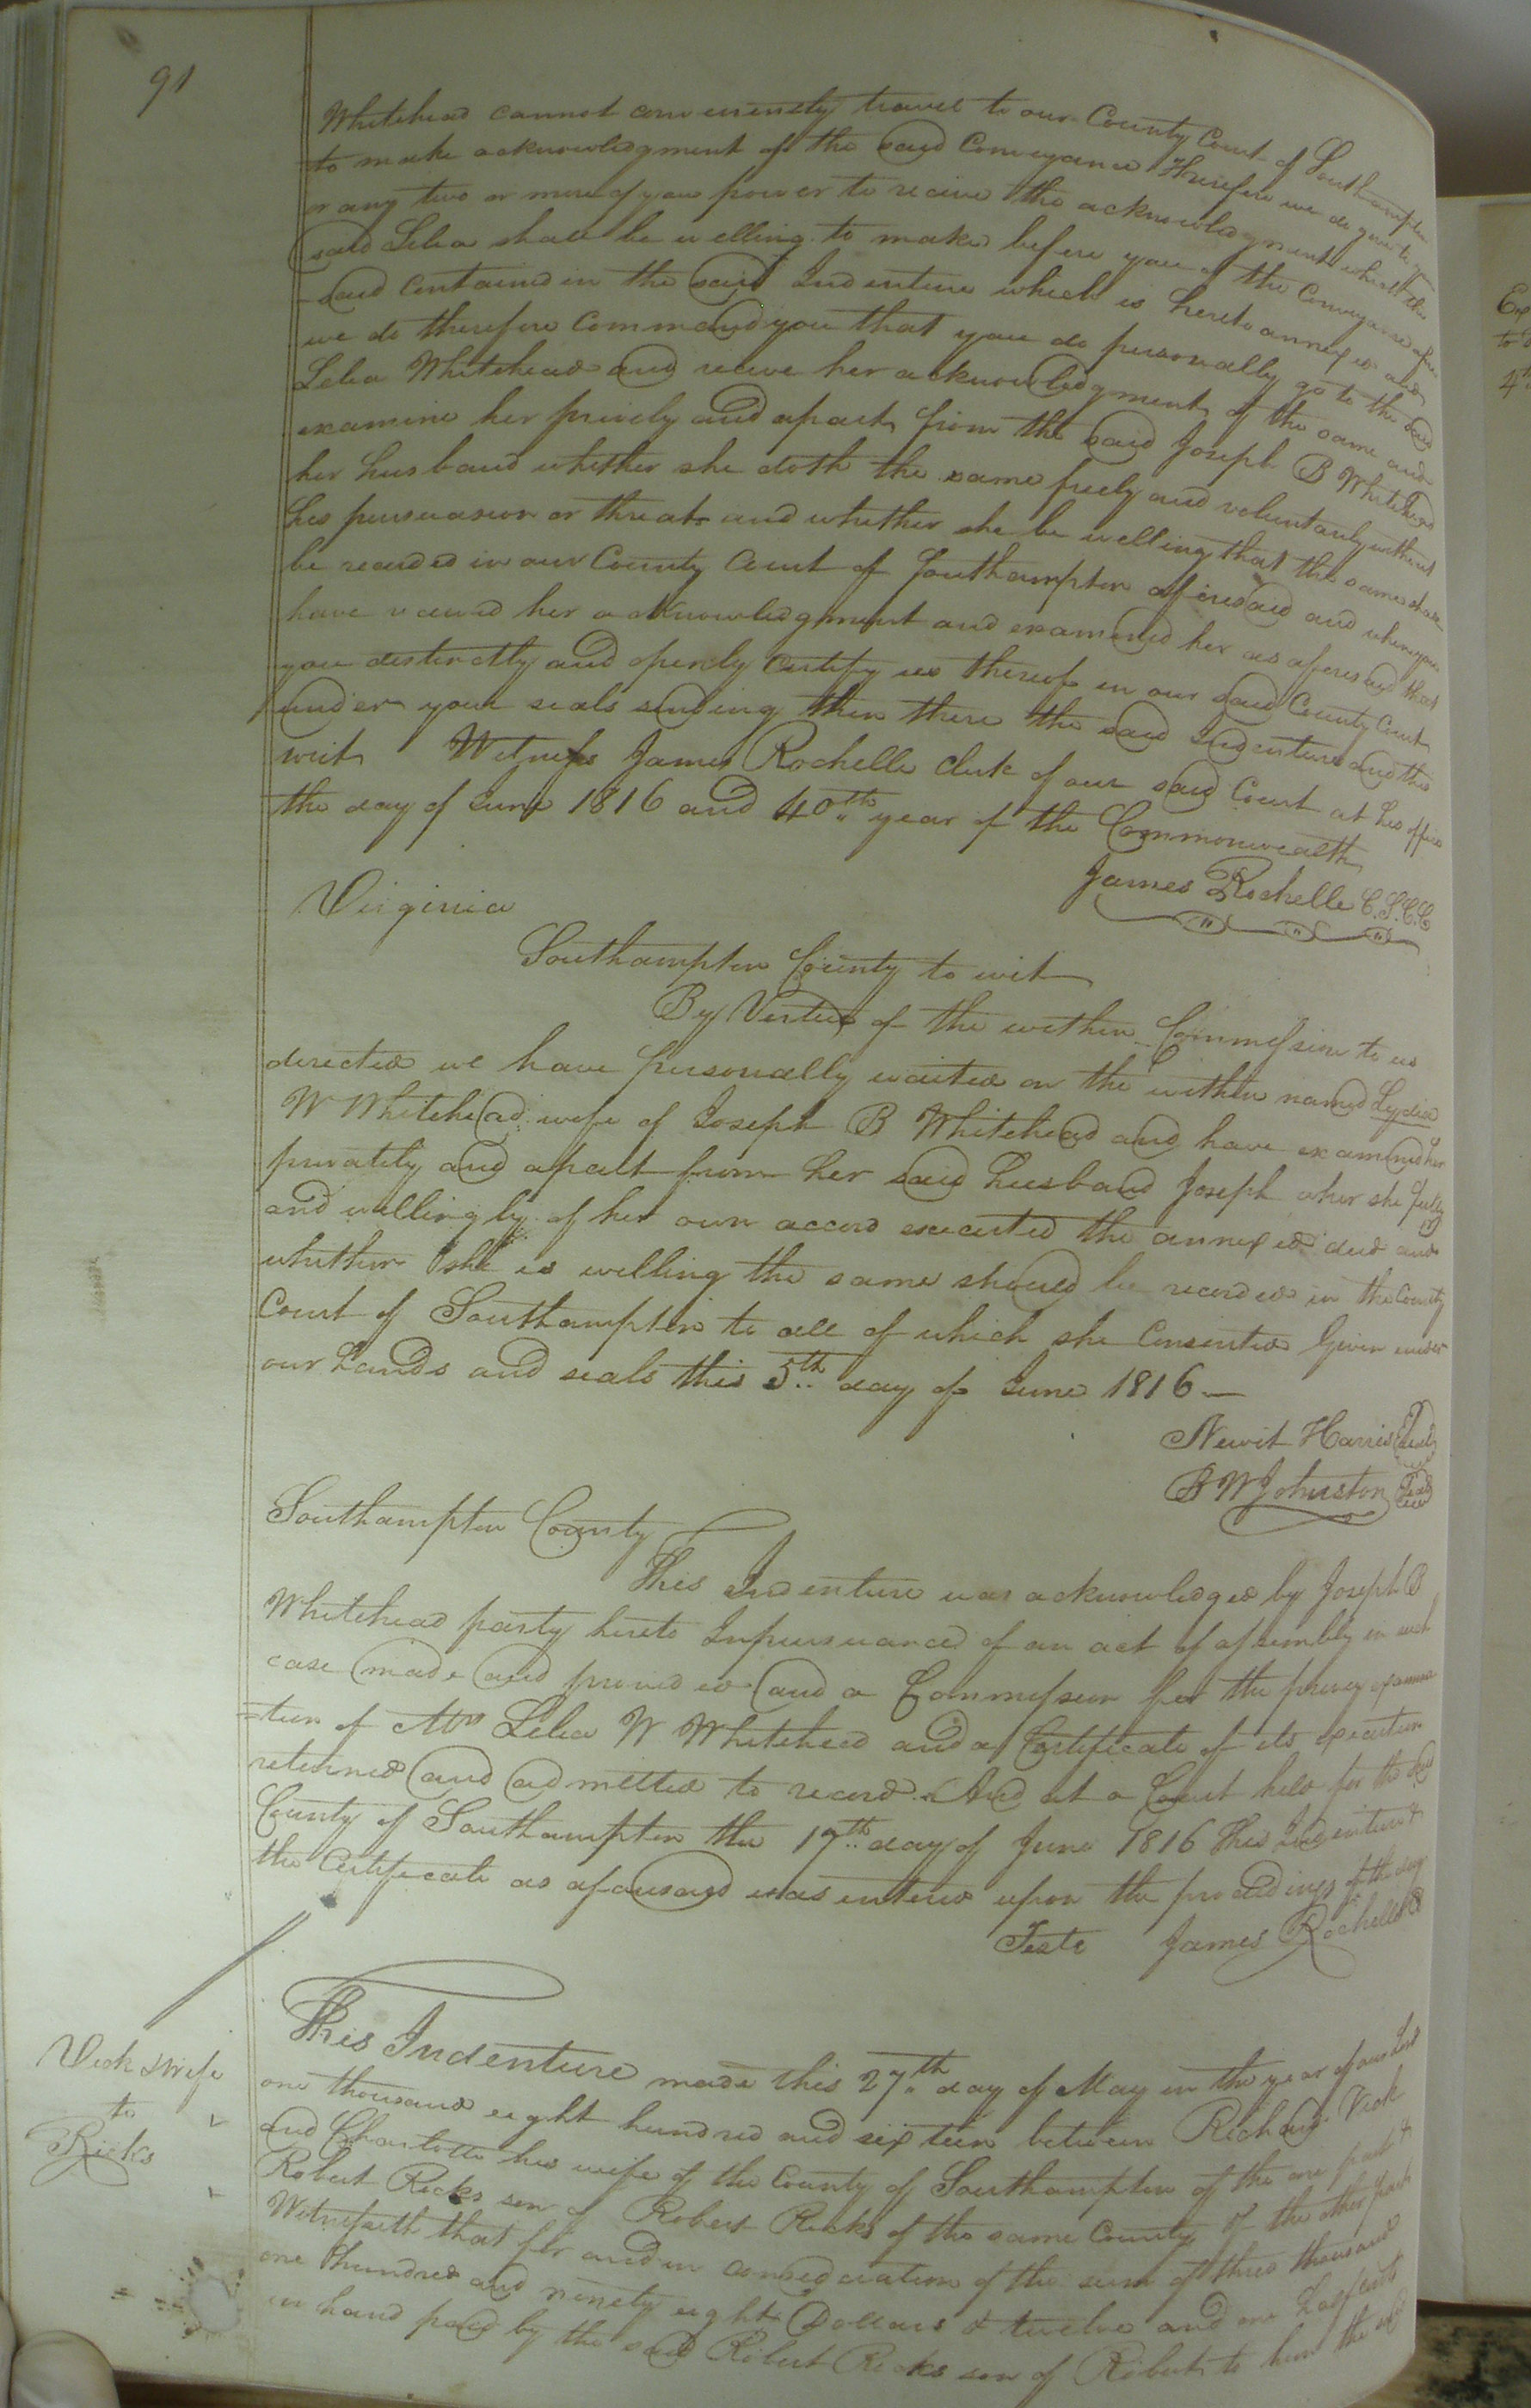 91
Whitehead cannot conveniently travel to our County Court of Southampton
to make acknowledgment of the said Conveyance Therefore we do give to you
or any two or more of you power to receive the acknowledgment which the
said Lelia shall be willing to make before you of the Conveyance afore
said contained in the said Indenture which is hereto annexed and
we do therefore command you that you do personally go to the said
Lelia Whitehead and receive her acknowledgment of the same and
examine her privily and apart from the said Joseph B Whitehead
her husband whether she doth the same freely and voluntarily without
his persuasion or threats and whether she be willing that the same shall
be recorded in our County Court of Southampton aforesaid and when you
have received her acknowledgment and examined her as aforesaid that
you distinctly and openly certify us thereof in our said County Court
under your seals sending then there the said Indenture and this
writ Witness James Rochelle clerk of our said Court at his office
the day of June 1816 and 40th year of the Commonwealth
James Rochelle C.S.C.C
Virginia
Southampton County to wit
By Virtue of the within Commission to us
directed we have personally waited on the within named Lydia
W Whitehead wife of Joseph B Whitehead and have examined her
privately and apart from her said husband Joseph wher she fully
and willingly of her own accord executed the annexed deed and
whether she is willing the same should be recorded in the County
Court of Southampton to all of which she Consented Given under
our hands and seals this 5th day of June 1816
Newit Harris Seal
B W Johnston Seal
Southampton County
This Indenture was acknowledged by Joseph B
Whitehead party hereto Inpursuance of an act of assembly in such
case made and provided and a Commission for the privy examina
=tion of Mrs Lelia W Whitehead and a Certificate of its execution
returned and admitted to record. And at a Court held for the said
County of Southampton the 17th day of June 1816 This Indenture &
the Certificate as aforesaid was entered upon the proceedings of the day
Teste James Rochelle C
Vick & Wife
to
Ricks
This Indenture made this 27th day of May in the year of our Lord
one thousand eight hundred and sixteen between Richard Vick
and Charlotte his wife of the County of Southampton of the one part &
Robert Ricks son of Robert Ricks of the same County of the other part
Witnesseth that for and in consideration of the sum of three thousand
one hundred and ninety eight Dollars & twelve and one half cents
in hand paid by the said Robert Ricks son of Robert to him the said